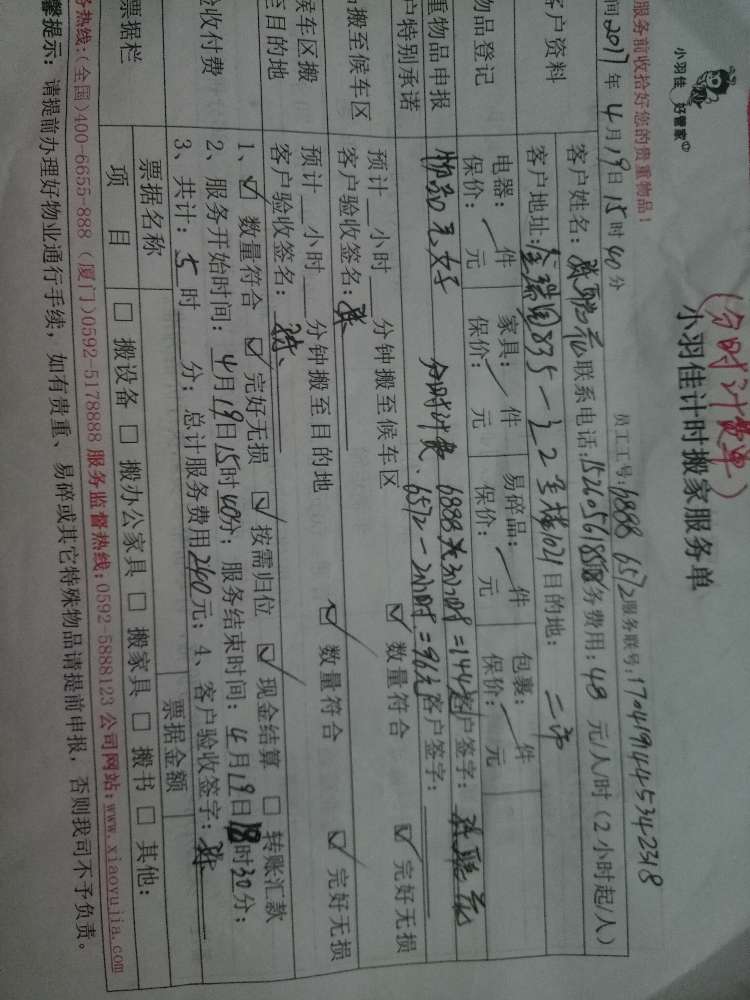 (分时计费单)
小羽佳
好管家
小羽佳计时搬家服务单
服务前收拾好您的贵重物品!
员工工号:6888 6572 服务联号:1704191445342318
间2017年4月19日15时40分
客户资料
客户姓名: 联系电话: 务费用:48元/人/时(2小时起/人)
客户地址:金瑞园835-32号楼1021 目的地:二市
物品登记
电器: 件 家具: 件 易碎品: 件 包裹: 件
保价: 元 保价: 元 保价: 元 保价: 元
重物品申报
户特别承诺
物品完好 分时计费、6888为3小时=144元 客户签字:
6572-2小时=96元 客户签字:
搬至候车区
预计 小时 分钟搬至候车区 ☑ 数量符合 ☑ 完好无损
客户验收签名:
候车区搬
至目的地
预计 小时 分钟搬至目的地 ☑ 数量符合 ☑ 完好无损
客户验收签名:
验收付费
1、☑ 数量符合 ☑ 完好无损 ☑ 按需归位 ☑ 现金结算 □ 转账汇款
2、服务开始时间:4月19日15时40分;服务结束时间:4月19日18时30分;
3、共计:5时 分;总计服务费用240元;4、客户验收签字:
票据栏
票据名称 票据金额
项目 □ 搬设备 □ 搬办公家具 □ 搬家具 □ 搬书 □ 其他:
务热线:(全国)400-6655-888 (厦门)0592-5178888 服务监督热线:0592-5888123 公司网站:www.xiaoyujia.com
馨提示:请提前办理好物业通行手续,如有贵重、易碎或其它特殊物品请提前申报,否则我司不予负责。